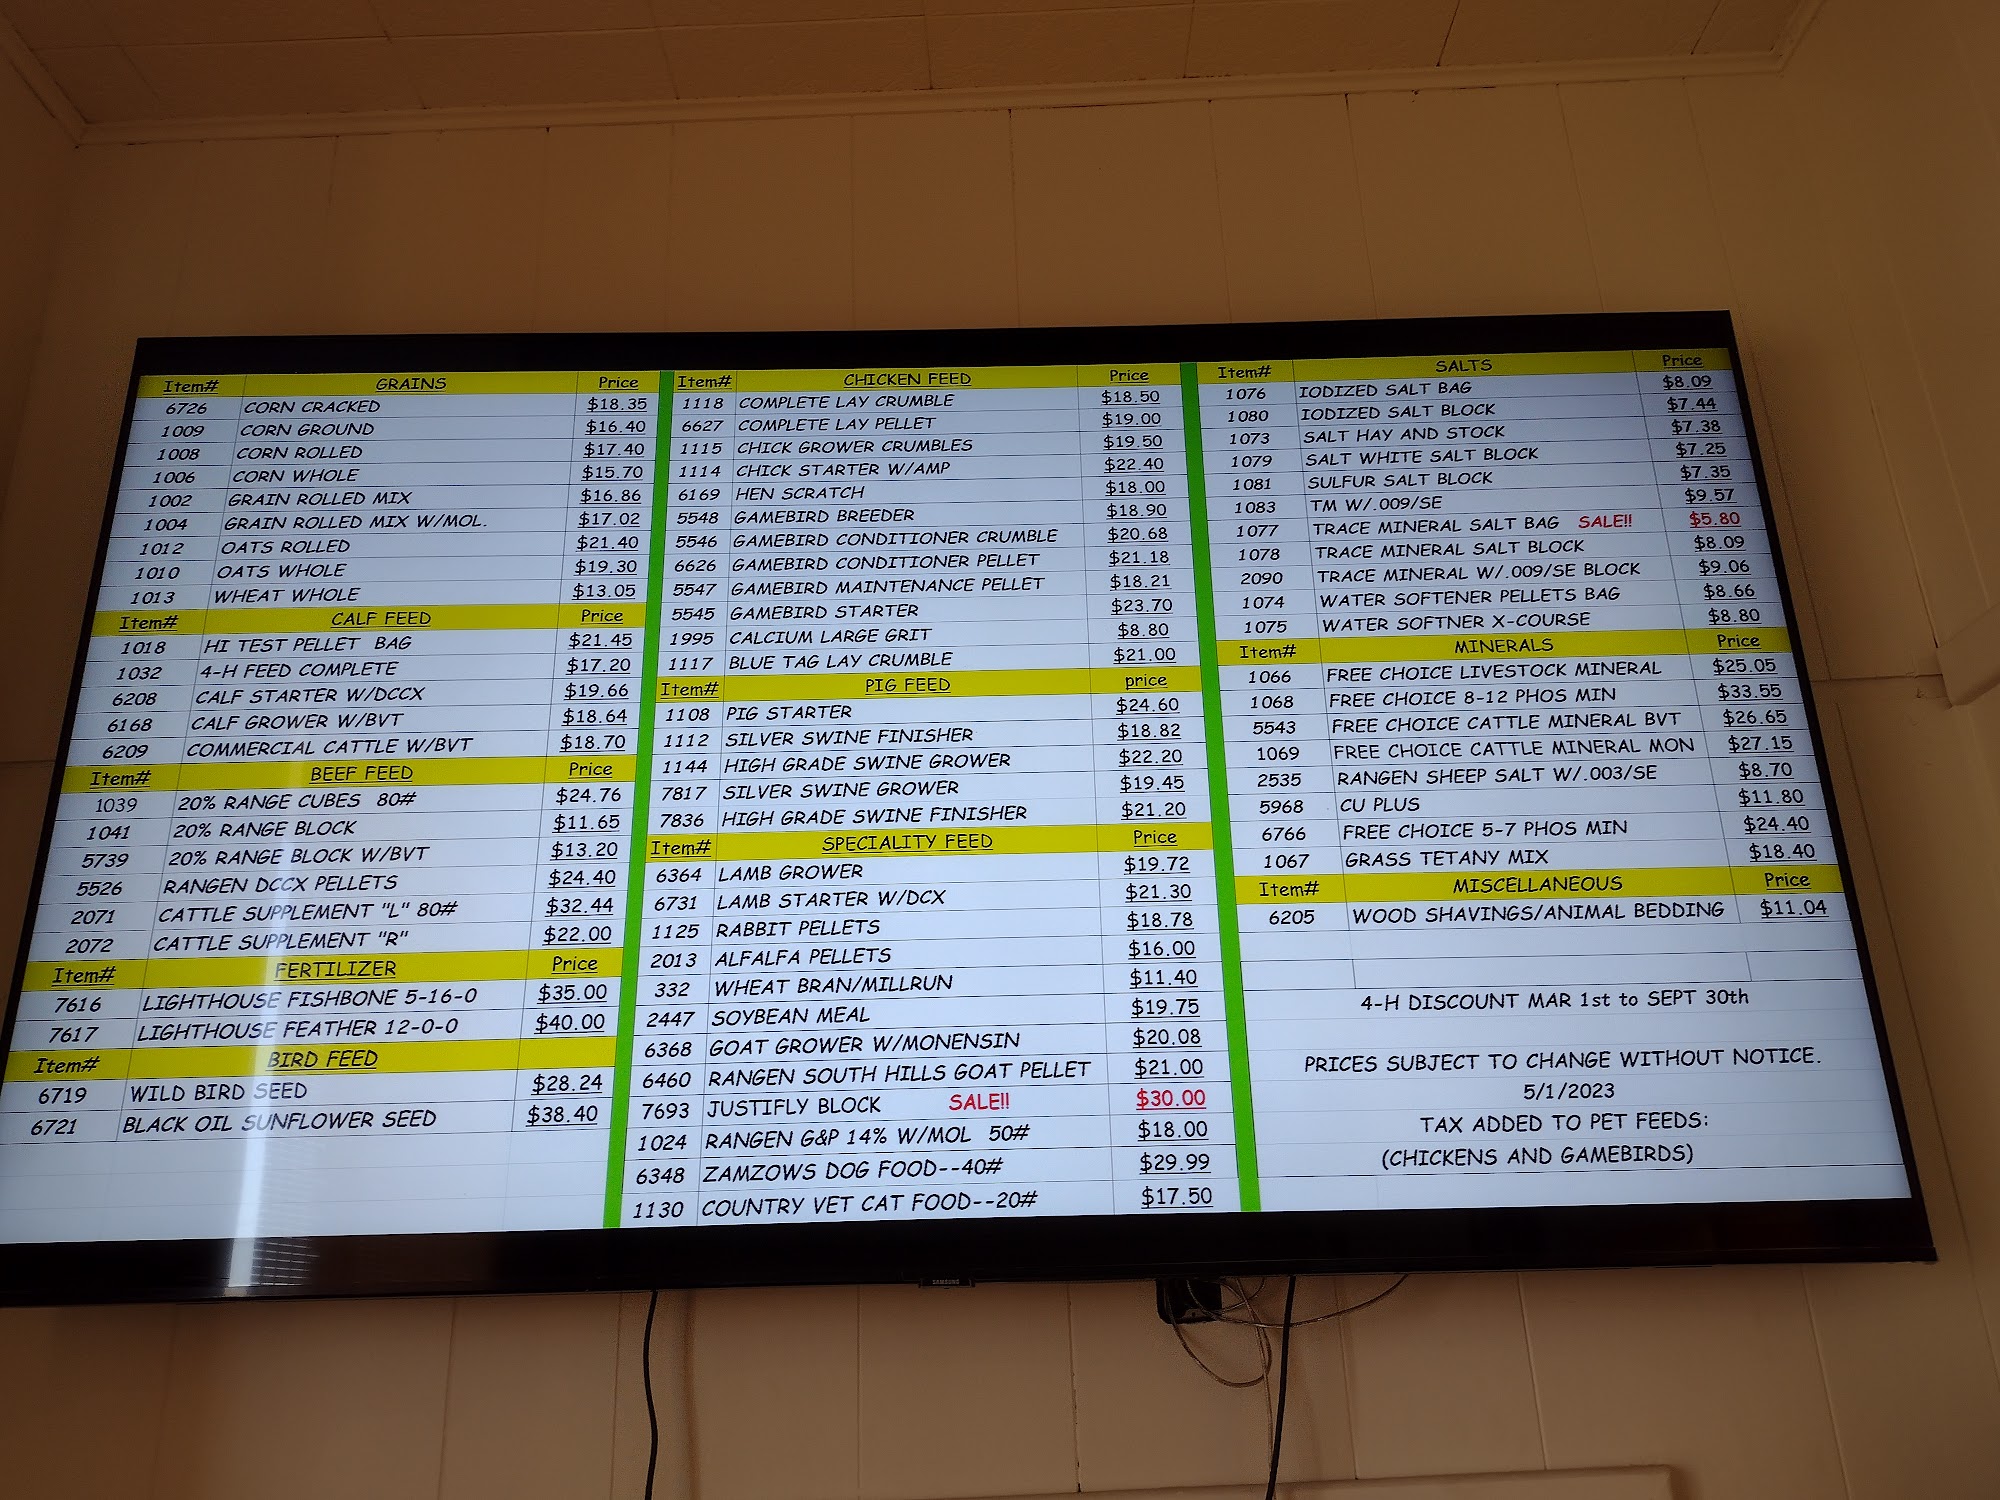 Item# GRAINS Price
6726 CORN CRACKED $18.35
1009 CORN GROUND $16.40
1008 CORN ROLLED $17.40
1006 CORN WHOLE $15.70
1002 GRAIN ROLLED MIX $16.86
1004 GRAIN ROLLED MIX W/MOL. $17.02
1012 OATS ROLLED $21.40
1010 OATS WHOLE $19.30
1013 WHEAT WHOLE $13.05
Item# CALF FEED Price
1018 HI TEST PELLET BAG $21.45
1032 4-H FEED COMPLETE $17.20
6208 CALF STARTER W/DCCX $19.66
6168 CALF GROWER W/BVT $18.64
6209 COMMERCIAL CATTLE W/BVT $18.70
Item# BEEF FEED Price
1039 20% RANGE CUBES 80# $24.76
1041 20% RANGE BLOCK $11.65
5739 20% RANGE BLOCK W/BVT $13.20
5526 RANGEN DCCX PELLETS $24.40
2071 CATTLE SUPPLEMENT "L" 80# $32.44
2072 CATTLE SUPPLEMENT "R" $22.00
Item# FERTILIZER Price
7616 LIGHTHOUSE FISHBONE 5-16-0 $35.00
7617 LIGHTHOUSE FEATHER 12-0-0 $40.00
Item# BIRD FEED
6719 WILD BIRD SEED $28.24
6721 BLACK OIL SUNFLOWER SEED $38.40
Item# CHICKEN FEED Price
1118 COMPLETE LAY CRUMBLE $18.50
6627 COMPLETE LAY PELLET $19.00
1115 CHICK GROWER CRUMBLES $19.50
1114 CHICK STARTER W/AMP $22.40
6169 HEN SCRATCH $18.00
5548 GAMEBIRD BREEDER $18.90
5546 GAMEBIRD CONDITIONER CRUMBLE $20.68
6626 GAMEBIRD CONDITIONER PELLET $21.18
5547 GAMEBIRD MAINTENANCE PELLET $18.21
5545 GAMEBIRD STARTER $23.70
1995 CALCIUM LARGE GRIT $8.80
1117 BLUE TAG LAY CRUMBLE $21.00
Item# PIG FEED price
1108 PIG STARTER $24.60
1112 SILVER SWINE FINISHER $18.82
1144 HIGH GRADE SWINE GROWER $22.20
7817 SILVER SWINE GROWER $19.45
7836 HIGH GRADE SWINE FINISHER $21.20
Item# SPECIALITY FEED Price
6364 LAMB GROWER $19.72
6731 LAMB STARTER W/DCX $21.30
1125 RABBIT PELLETS $18.78
2013 ALFALFA PELLETS $16.00
332 WHEAT BRAN/MILLRUN $11.40
2447 SOYBEAN MEAL $19.75
6368 GOAT GROWER W/MONENSIN $20.08
6460 RANGEN SOUTH HILLS GOAT PELLET $21.00
7693 JUSTIFLY BLOCK SALE!! $30.00
1024 RANGEN G&P 14% W/MOL 50# $18.00
6348 ZAMZOWS DOG FOOD--40# $29.99
1130 COUNTRY VET CAT FOOD--20# $17.50
Item# SALTS Price
1076 IODIZED SALT BAG $8.09
1080 IODIZED SALT BLOCK $7.44
1073 SALT HAY AND STOCK $7.38
1079 SALT WHITE SALT BLOCK $7.25
1081 SULFUR SALT BLOCK $7.35
1083 TM W/.009/SE $9.57
1077 TRACE MINERAL SALT BAG SALE!! $5.80
1078 TRACE MINERAL SALT BLOCK $8.09
2090 TRACE MINERAL W/.009/SE BLOCK $9.06
1074 WATER SOFTENER PELLETS BAG $8.66
1075 WATER SOFTNER X-COURSE $8.80
Item# MINERALS Price
1066 FREE CHOICE LIVESTOCK MINERAL $25.05
1068 FREE CHOICE 8-12 PHOS MIN $33.55
5543 FREE CHOICE CATTLE MINERAL BVT $26.65
1069 FREE CHOICE CATTLE MINERAL MON $27.15
2535 RANGEN SHEEP SALT W/.003/SE $8.70
5968 CU PLUS $11.80
6766 FREE CHOICE 5-7 PHOS MIN $24.40
1067 GRASS TETANY MIX $18.40
Item# MISCELLANEOUS Price
6205 WOOD SHAVINGS/ANIMAL BEDDING $11.04
4-H DISCOUNT MAR 1st to SEPT 30th
PRICES SUBJECT TO CHANGE WITHOUT NOTICE.
5/1/2023
TAX ADDED TO PET FEEDS:
(CHICKENS AND GAMEBIRDS)
SAMSUNG